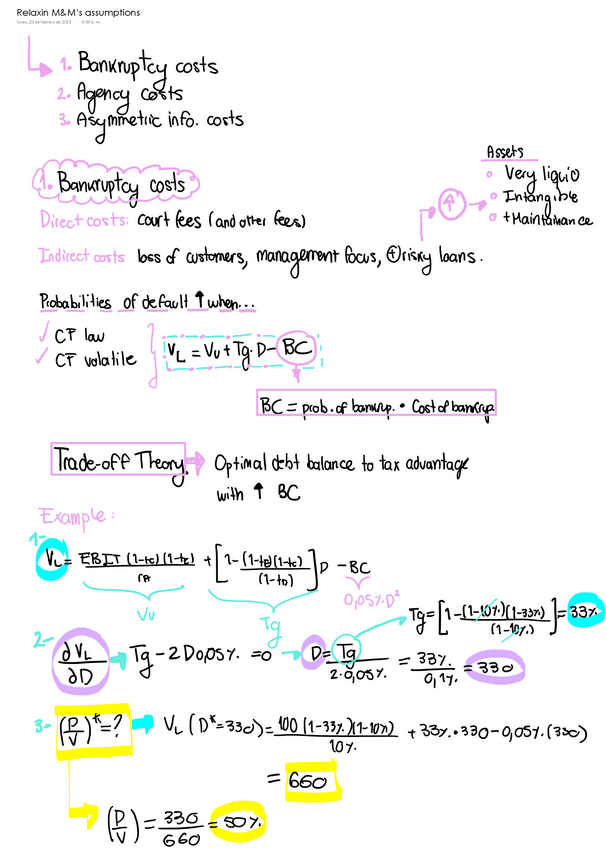 Relaxin M&M's assumptions
lunes, 20 de febrero de 2023 9:30 a. m.
1. Bankruptcy costs
2. Agency costs
3. Asymmetric info. costs
1. Bankruptcy costs
Direct costs: court fees (and other fees)
Indirect costs loss of customers, management focus, ⊕risky loans.
↑
Assets
Very liquid
Intangible
+Maintainance
Probabilities of default ↑ when...
✓ CF low
✓ CF volatile
VL = Vu + Tg. D - BC
BC = prob. of bankrup. • Cost of bankrup
Trade-off Theory. Optimal debt balance to tax advantage
with ↑ BC
Example:
1- VL = EBIT (1-tc)(1-te) / rA + [1-(1-te)(1-tc) / (1-tD)] D - BC
Vu
Tg
0,05%.D²
Tg = [1-(1-10%)(1-33%) / (1-10%)] = 33%
2- ∂VL / ∂D → Tg - 2D0,05% = 0 → D = Tg / 2·0,05% = 33% / 0,1% = 330
3- (D/V)* = ? → VL (D*=330) = 100 (1-33%)(1-10%) / 10% + 33%•330 - 0,05%.(330)
= 660
(D/V) = 330 / 660 = 50%